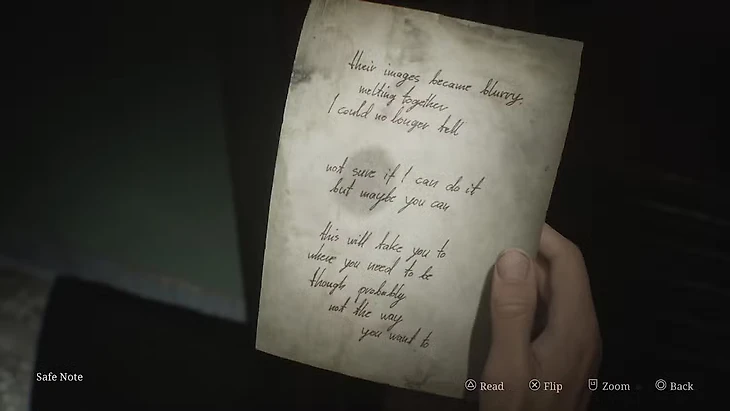 their images became blurry,
melting together
I could no longer tell
not sure if I can do it
but maybe you can
this will take you to
where you need to be
though probably
not the way
you want to
Safe Note
Read
Flip
Zoom
Back